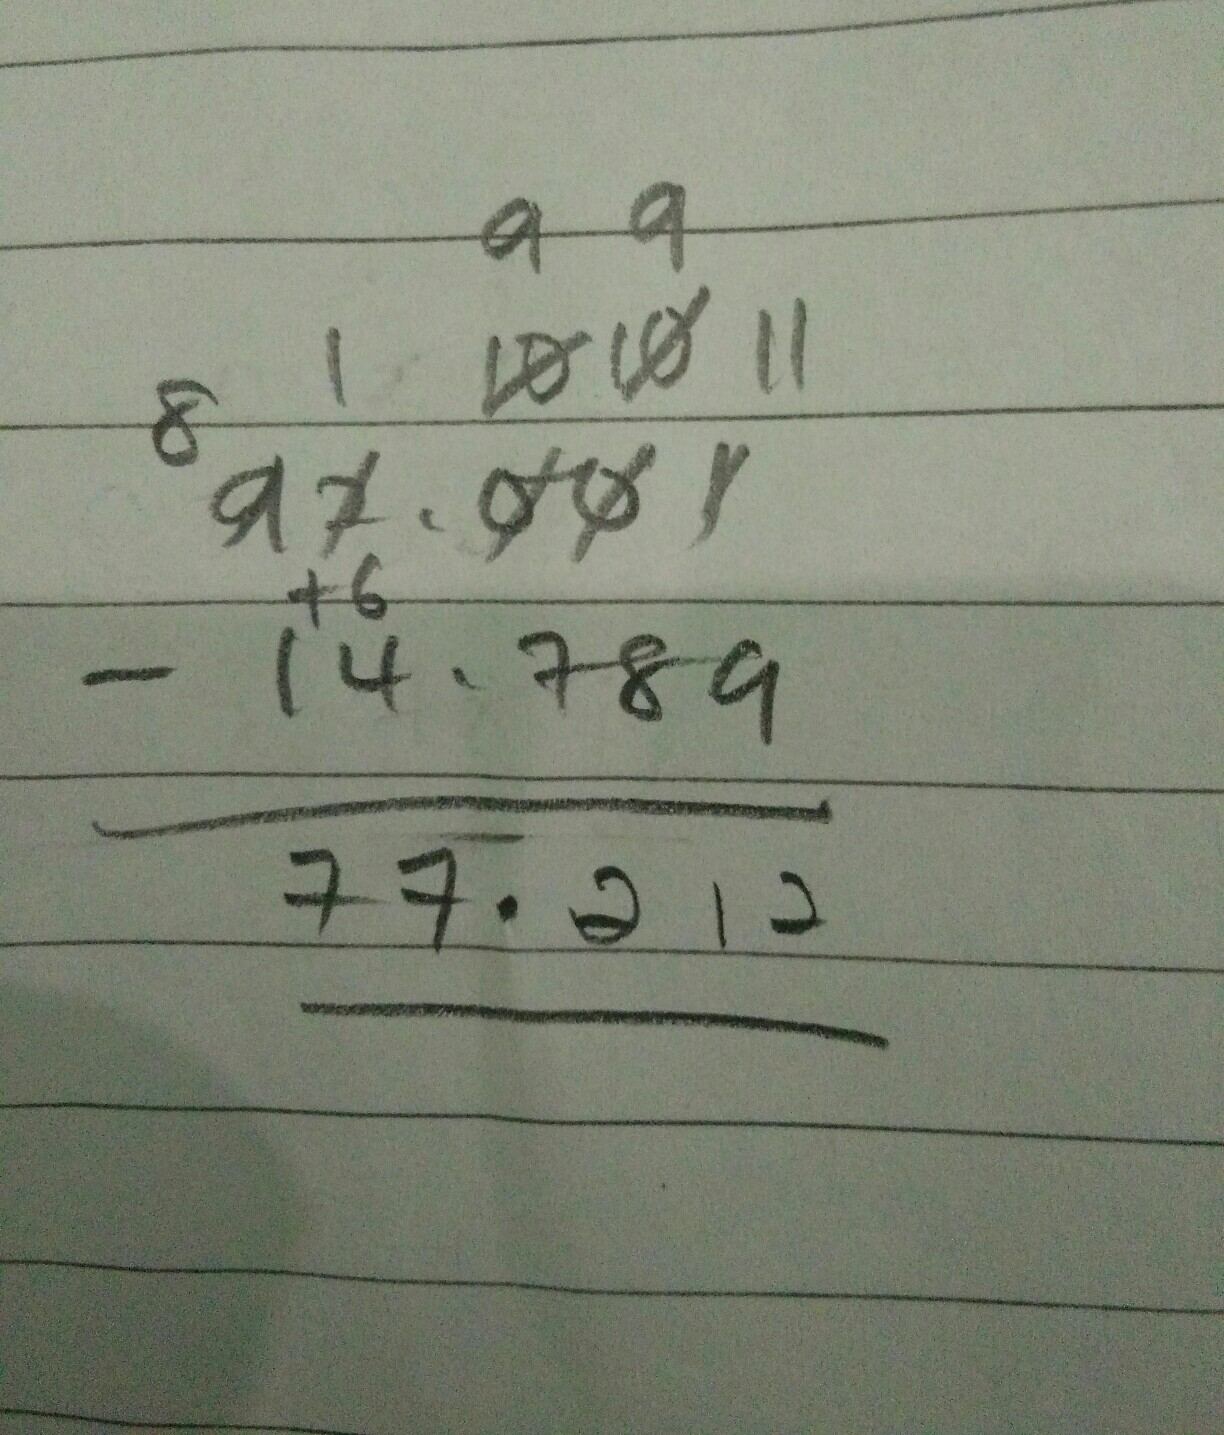 9 9
1 10 10 11
8
92.001
+6
- 14.789
77.212